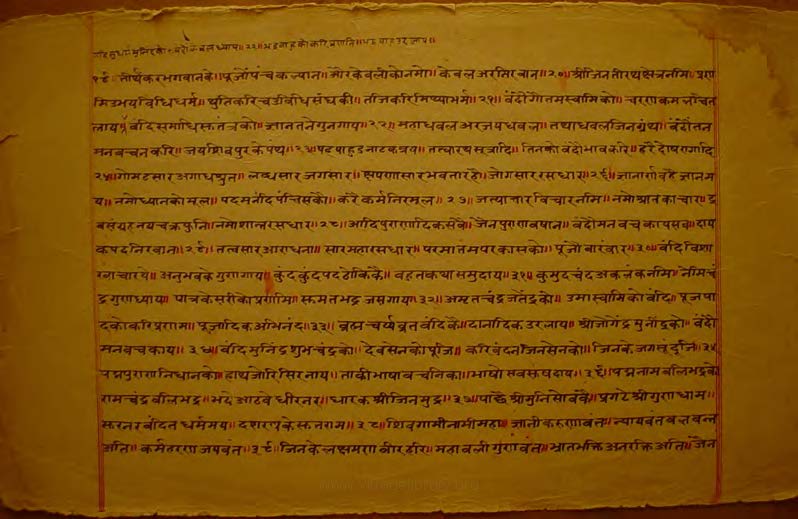 १९ तीर्थंकरभगवानके॥पूजोंपंचकल्यान॥औरकेवलीकोनमो॥केवलअरनिरवान॥२०॥श्रीजिनतीरथक्षेत्रनमि॥प्रण
मिउभयविधिधर्म॥थुतिकरिचउविधिसंघकी॥तजिकरिमिथ्याभर्म॥२१॥वंदौंगौतमस्वामिको॥चरणकमलचित
लाय॥वंदि॥ज्ञानतनेगुनगाय॥२२॥महाधवलअरजयधवल॥तथाधवलजिनग्रंथ॥वंदौंतन
मनवचनकरि॥जयशिवपुरकेपंथ॥षटपाहुडनाटकत्रय॥तत्वारथसूत्रादि॥तिनकोवंदौंभावकरि॥हरैंदोषरागादि
२५॥गोमटसारअगाधश्रुत॥लब्धसारजगसार॥क्षपणासारभवतारहै॥जोगसाररसधार॥२६॥ज्ञानार्णवहैज्ञानम
य॥नमोध्यानकोमूल॥पदमनंदिपंचिसको॥करैकर्मनिरमूल॥२७॥जत्याचारविचारनमि॥नमोश्रावकाचार॥द्र
व्यसंग्रहनयचक्रफुनि॥नमोशांतरसधार॥२८॥आदिपुराणादिकसबै॥जैनपुराणवषान॥वंदौंमनवचकायसब॥दाय
कपदनिरवान॥२९॥तत्वसारआराधना॥सारमहारसधार॥परमातमपरकासको॥पूजोंबारंबार॥३०॥वंदिविशा
षाचारये॥अनुभवकेगुणगाय॥कुंदकुंदपदढोकिकै॥कहतकथासमुदाय॥३१॥कुमुदचंदअकलंकनमि॥नेमिचं
द्रगुणध्याय॥पात्रकेसरीकोप्रणमि॥समतभद्रजसगाय॥३२॥अमृतचंद्रजतेंद्रको॥उमास्वामिकोवंदि॥पूजपा
दकोकरिप्रणाम॥पूजादिकअभिनंद॥३३॥ब्रह्मचर्य्यव्रतवंदिकै॥दानादिकउरलाय॥श्रीजोगेंद्रमुनींद्रको॥वंदौं
मनवचकाय॥३४॥वंदिमुनिंद्रशुभचंद्रको॥देवसेनकोपूजि॥करिवंदनजिनसेनको॥जिनके॥३५
पद्मपुराणनिधानको॥हाथजोरिसिरनाय॥ताकीभाषावचनिका॥भाषोसबसुषदाय॥३६॥पद्मनामबलिभद्रको
रामचंद्रबलिभद्र॥भयेआठवेधीरनर॥धारकश्रीजिनमुद्र॥३७॥पाछैश्रीमुनिसोवंतै॥प्रगटेश्रीगुणधाम॥
सुरनरबंदितधर्ममय॥दशरथकेसुतराम॥३८॥शिवगामीनामीमहा॥ज्ञानीकरुणावंत॥न्यायवंतबलवन्त
अति॥कर्महरणजयवंत॥३९॥जिनकेलक्षमणवीरहरि॥महाबलीगुणवंत॥भ्रातभक्तिअनुरक्तिअति॥जैन